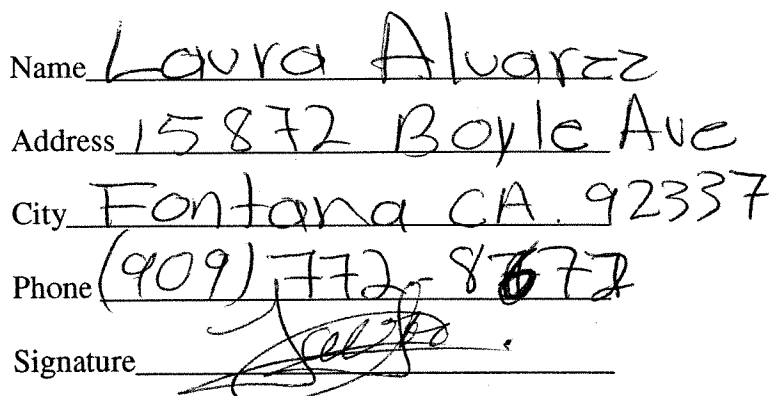 Name Laura Alvarez
Address 15872 Boyle Ave
City Fontana CA. 92337
Phone (909) 772-8672
Signature